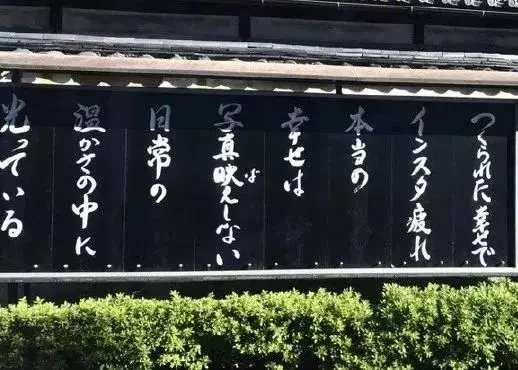 つくられた幸せで
インスタ疲れ
本当の
幸せは
写真映えしない
ば
日常の
温かさの中に
光っている